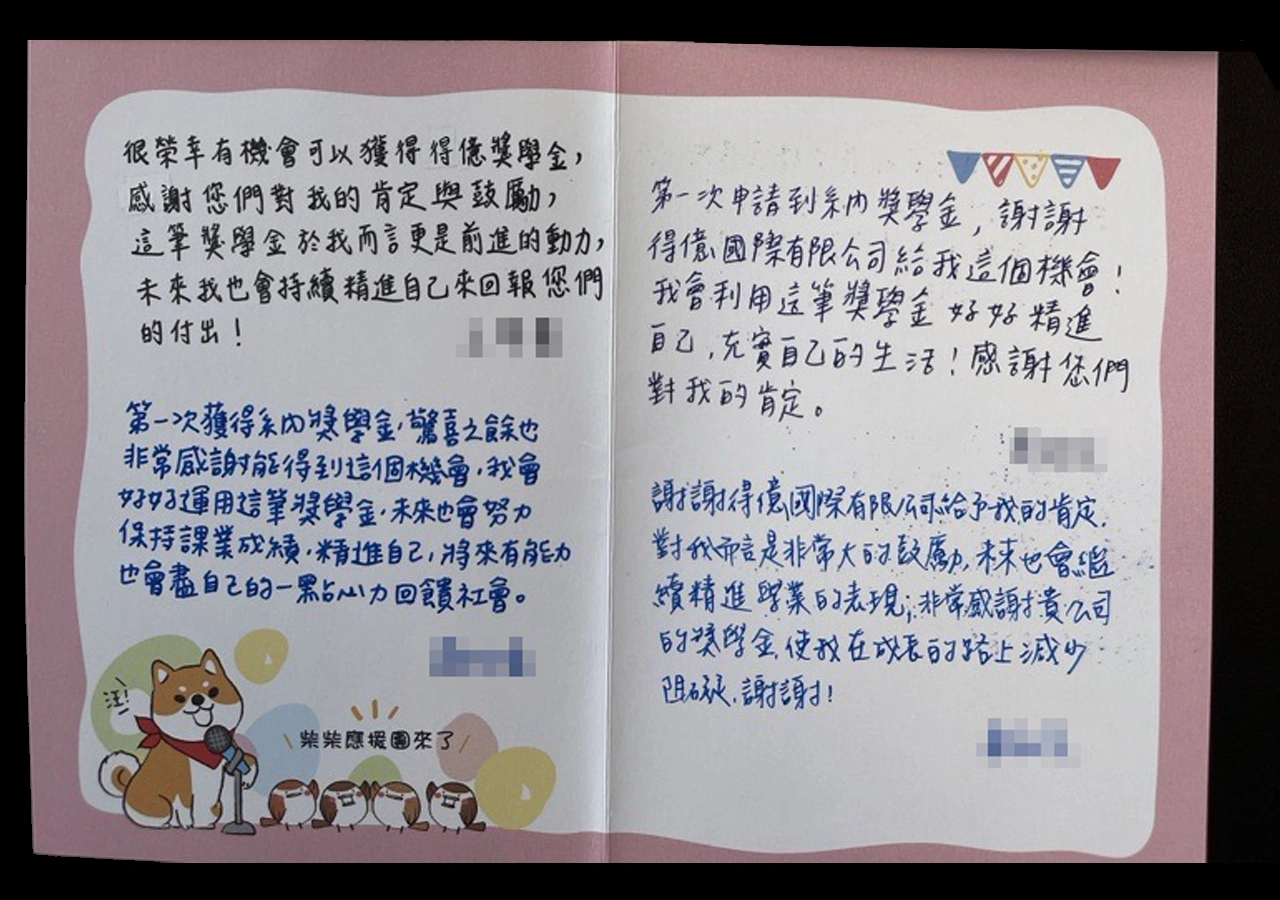 很榮幸有機會可以獲得得億獎學金，
感謝您們對我的肯定與鼓勵，
這筆獎學金於我而言更是前進的動力，
未來我也會持續精進自己來回報您們
的付出！
第一次獲得系內獎學金，驚喜之餘也
非常感謝能得到這個機會，我會
好好運用這筆獎學金，未來也會努力
保持課業成績，精進自己，將來有能力
也會盡自己的一點心力回饋社會。
汪！
柴柴應援團來了
第一次申請到系內獎學金，謝謝
得億國際有限公司給我這個機會！
我會利用這筆獎學金好好精進
自己，充實自己的生活！感謝您們
對我的肯定。
謝謝得億國際有限公司給予我的肯定，
對我而言是非常大的鼓勵，未來也會繼
續精進學業的表現；非常感謝貴公司
的獎學金，使我在成長的路上減少
阻礙，謝謝！